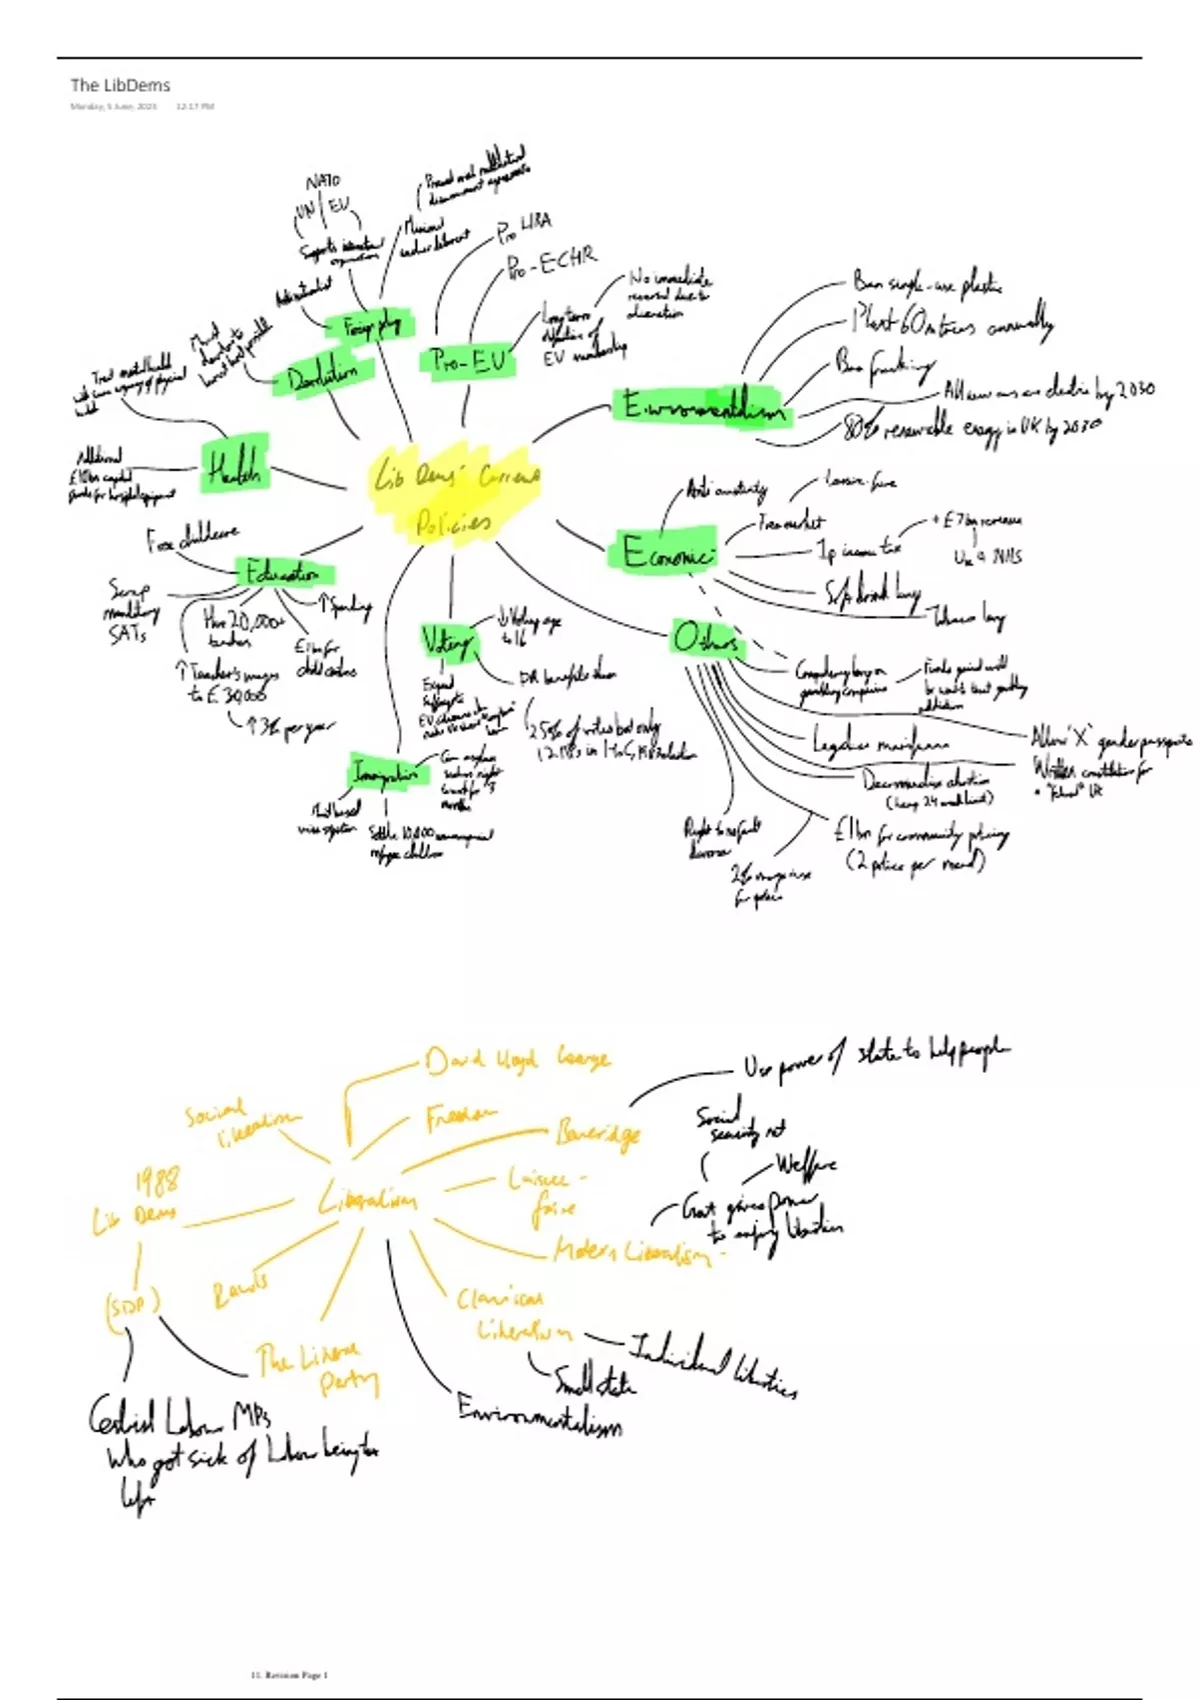 The LibDems
Monday, 5 June, 2023 12:17 PM
NATO
UN EU
Supports international
organisations
Pro LIRA
Pro-ECHR
Foreign policy
Devolution
Pro-EU
No immediate
reversal due to
Long term
objective of
EU membership
Environmentalism
Ban single-use plastic
Plant 60m trees annually
Ban fracking
All new cars are electric by 2030
80% renewable energy in UK by 2030
Treat mental health
with same urgency of physical
health
Health
Additional
£10bn capital
funds for hospital equipment
Lib Dems' Current
Policies
Economic
Anti austerity
Laissez-faire
Free market
1p income tax
+ £7bn revenue
NHS
Soft drink levy
Tobacco levy
Education
Free childcare
Scrap
mandatory
SATs
Hire 20,000+
teachers
↑ Teacher's wages
to £30,000
↑ 3% per year
£1bn for
child centres
↑ Spending
Voting
↓ Voting age
to 16
PR benefits them
25% of votes but only
Expand
suffrage to
Immigration
Merit based
visa system
Settle 10,000 unaccompanied
refugee children
months
Others
Compulsory levy on
gambling companies
addiction
Legalise marijuana
Allow 'X' gender passports
Written constitution for
a "federal" UK
Decriminalise abortion
(keep 24 week limit)
£1bn for community policing
(2 police per ward)
2% wage increase
for police
Right to no fault
divorce
David Lloyd George
Social
liberalism
Freedom
Beveridge
Use power of state to help people
1988
Lib Dems
Liberalism
Laissez-
faire
Social
security net
Welfare
Govt gives power
to enjoy liberties
Modern Liberalism
(SDP)
Rawls
The Liberal
party
Classical
Liberalism
Individual liberties
Small state
Environmentalism
Centrist Labour MPs
who got sick of Labour being too
left
11. Revision Page 1